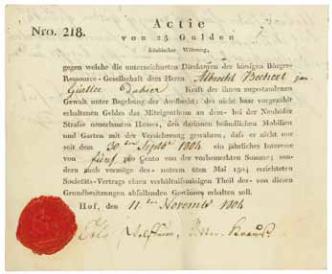 Nro. 218. Actie
von 25 Gulden
fränkischer Währung,
gegen welche die unterzeichneten Direktoren der hiesigen Bürger-
Ressource-Gesellschaft dem Herrn Albrecht
Kraft der ihnen zugestandenen
Gewalt unter Begebung der Ausflucht: des nicht baar vorgezählt
erhaltenen Geldes das Miteigenthum an dem bei der Neuhöfer
Straße neuerbauten Hauses, den darinnen befindlichen Mobilien
und Garten mit der Versicherung gewähren, daß er nicht nur
seit dem 30 Sept 1804 ein jährliches Interesse
von fünf pro Cento von der vorbemerkten Summe; sondern
auch vermöge des unterm 2ten Mai 1804 errichteten
Societäts-Vertrags einen verhältnißmäßigen Theil der von diesen
Grundbesitzungen abfallenden Gewinnes erhalten soll.
Hof, den 11 November 1804